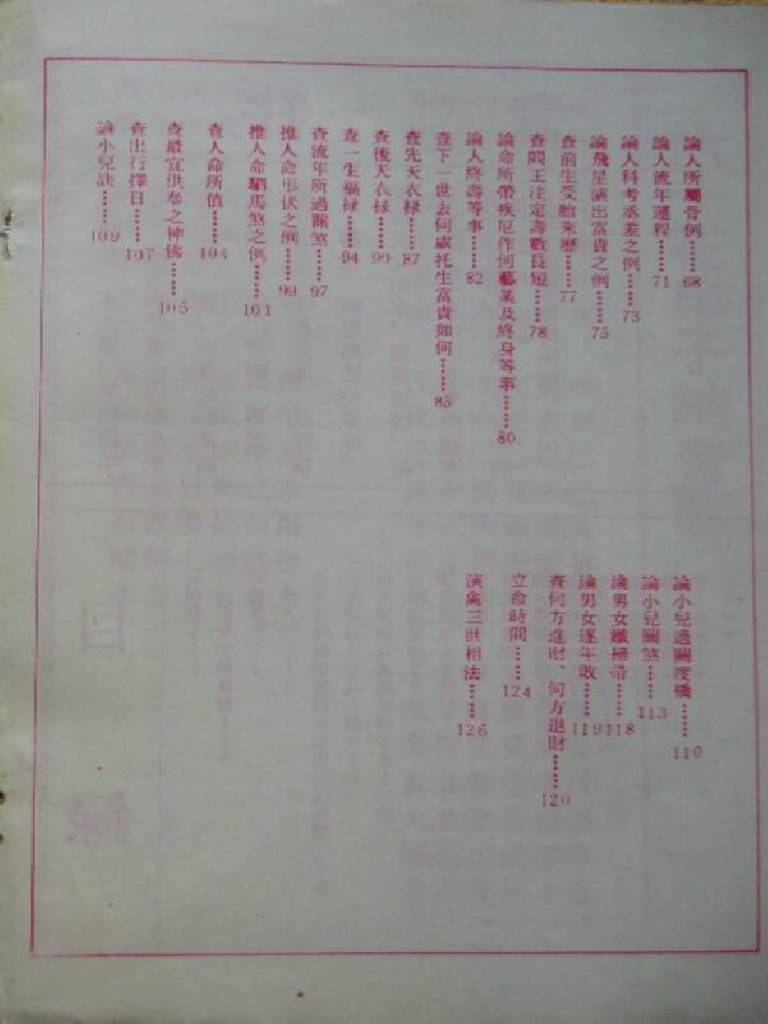 論人所屬骨例……68
論人流年運程……71
論人科考丞差之例……73
論飛星演出富貴之例……75
查前生受胎來歷……77
查閻王注定壽數長短……78
論命所帶疾厄作何藝業及終身等事……80
論人終壽等事……82
查下一世去何處托生富貴如何……85
查先天衣祿……87
查後天衣祿……90
查一生福祿……94
查流年所過關煞……97
推人命形伏之例……99
推人命駟馬煞之例……101
查人命所值……104
查最宜供奉之神佛……105
查出行擇日……107
論小兒訣……109
論小兒過關度橋……110
論小兒關煞……113
論男女鐵掃帚……118
論男女逐年收……119
查何方進財、何方退財……120
立命時間……124
演禽三世相法……126
目
錄